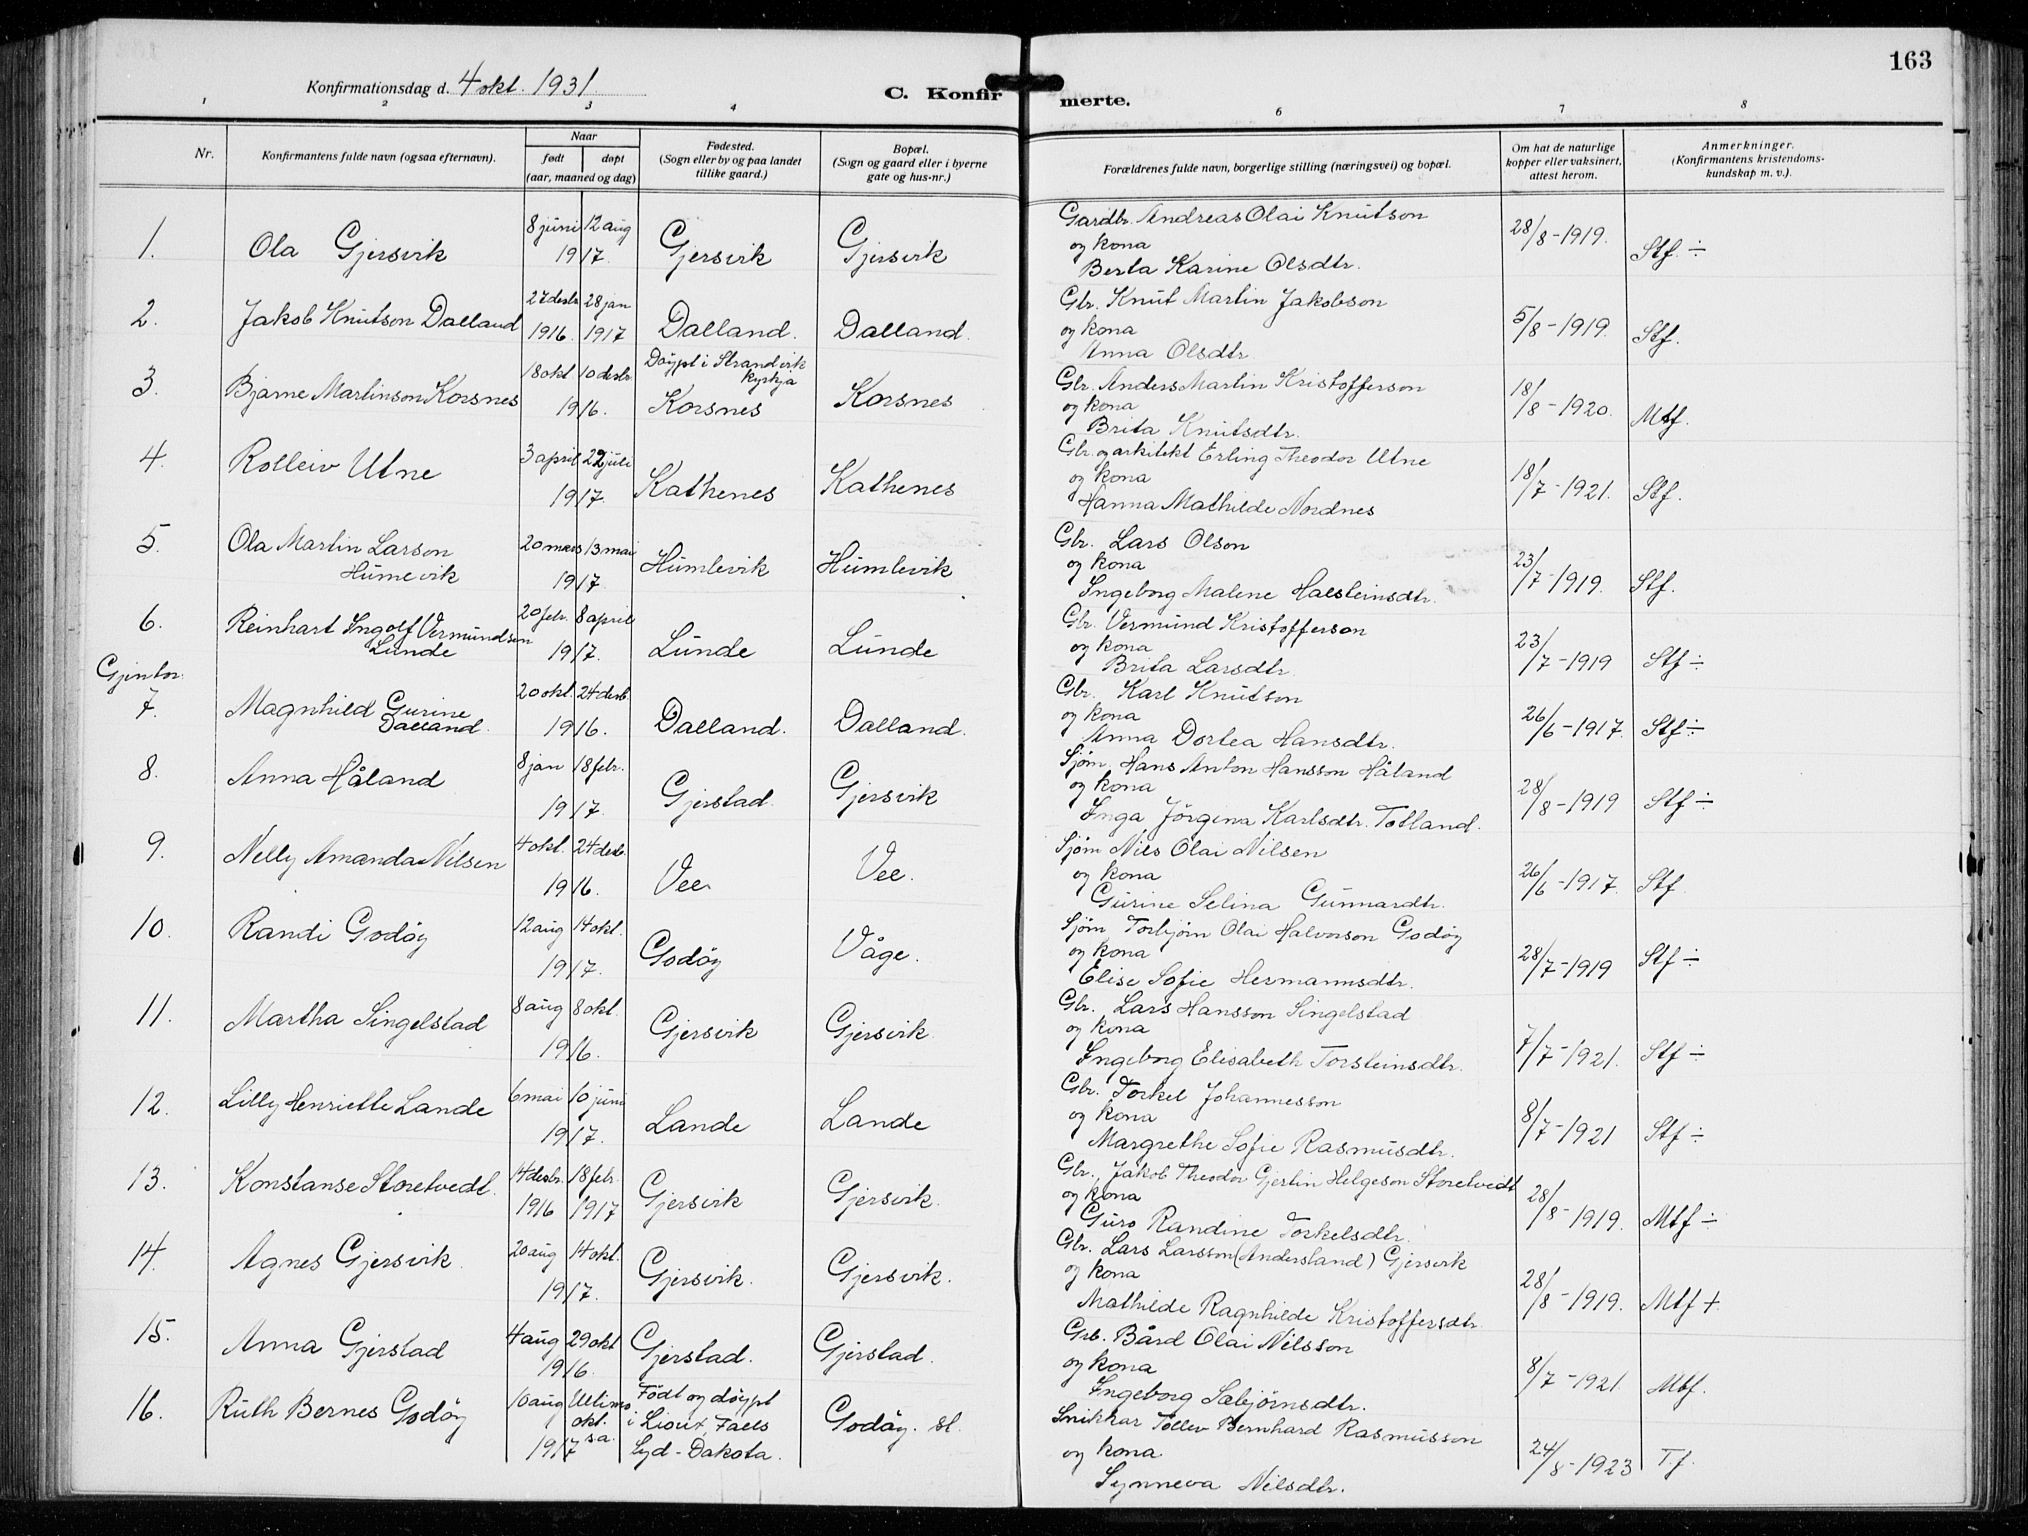 163
Konfirmationsdag d. 4 okt. 1931.
C. Konfirmerte.
1 2 3 4 6 7 8
Nr.
Konfirmantens fulde navn (ogsaa efternavn).
Naar
født døpt
(aar, maaned og dag)
Fødested.
(Sogn eller by og paa landet
tillike gaard.)
Bopæl.
(Sogn og gaard eller i byerne
gate og hus-nr.)
Forældrenes fulde navn, borgerlige stilling (næringsvei) og bopæl.
Om hat de naturlige
kopper eller vaksinert,
attest herom.
Anmerkninger.
(Konfirmantens kristendoms-
kundskap m. v.).
1. Ola Gjersvik 8 juni 12 aug 1917. Gjersvik Gjersvik
Gardbr. Andreas Olai Knutson
og kona
Berta Karine Olsdtr.
28/8-1919. Stf. ÷
2. Jakob Knutson Dalland 27 desbr 1916. 28 jan 1917 Dalland. Dalland.
Gbr. Knut Martin Jakobson
og kona
Anna Olsdtr
5/8-1919. Stf.
3. Bjarne Martinson Korsnes 18 okt 10 desbr. 1916.
Døypt i Strandvik
kyrkja
Korsnes Korsnes
Gbr. Anders Martin Kristofferson
og kona
Brita Knutsdtr.
18/8-1920. Mtf.
4. Rolleiv Utne 3 april 22 juli 1917. Kathenes Kathenes
Gbr. og arkitekt Erling Theodor Utne
og kona
Hanna Mathilde Nordnes
18/7-1921. Stf.
5. Ola Martin Larson
Humevik
20 mars 13 mai 1917. Humlevik Humlevik
Gbr. Lars Olson
og kona
Ingeborg Malene Halsteinsdtr.
23/7-1919. Stf.
6. Reinhart Ingolf Vermundsen
Lunde
20 febr. 8 april 1917. Lunde Lunde
Gbr. Vermund Kristofferson
og kona
Brita Larsdtr.
23/7-1919 Stf ÷
Gjentor.
7. Magnhild Gurine
Dalland.
20 okt. 24 desb. 1916. Dalland. Dalland.
Gbr. Karl Knutson
og kona
Anna Dortea Hansdtr.
26/6-1917. Stf ÷
8. Anna Håland 8 jan 18 febr. 1917. Gjerstad. Gjersvik
Sjøm. Hans Anton Hansson Håland
og kona
Inga Jörgina Karlsdtr. Totland.
28/8-1919 Stf ÷
9. Nelly Amanda Nilsen 4 okt. 24 desb. 1916. Vee Vee.
Sjøm Nils Olai Nilsen
og kona
Gurine Selina Gunnardtr.
26/6-1917. Stf.
10. Randi Godöy 12 aug 14 okt. 1917. Godöy Våge.
Sjøm Torbjørn Olai Halvorson Godöy
og kona
Elise Sofie Hermannsdtr.
28/7-1919 Stf ÷
11. Martha Singelstad 8 aug 8 okt. 1916. Gjersvik Gjersvik
Gbr. Lars Hansson Singelstad
og kona
Ingeborg Elisabeth Torsteinsdtr.
7/7-1921. Stf ÷
12. Lilly Henriette Lande 6 mai 10 juni 1917. Lande Lande
Gbr. Torkel Johannesson
og kona
Margrethe Sofie Rasmusdtr.
8/7-1921 Stf ÷
13. Konstanse Storetvedt. 14 desbr. 1916 18 febr. 1917 Gjersvik Gjersvik.
Gbr. Jakob Theodor Gjertin Helgeson Storetvedt
og kona
Guro Randine Torkelsdtr.
28/8-1919. Mtf ÷
14. Agnes Gjersvik. 20 aug 14 okt. 1917. Gjersvik. Gjersvik.
Gbr. Lars Larsson (Andersland) Gjersvik
og kona
Mathilde Ragnhilde Kristoffersdtr.
28/8-1919. Mtf +
15. Anna Gjerstad 4 aug 29 okt 1916. Gjerstad. Gjerstad.
Grb. Bård Olai Nilsson
og kona
Ingeborg Sæbjørnsdtr.
8/7-1921. Mtf.
16. Ruth Bernes Godöy 10 aug Ultimo
okt.
s.a.
1917
Födt og döypt
i Lioux Falls
Syd-Dakota.
Godöy. st.
Snikkar Tollev Bernhard Rasmusson
og kona
Synneva Nilsdtr.
24/8-1923 T.f.